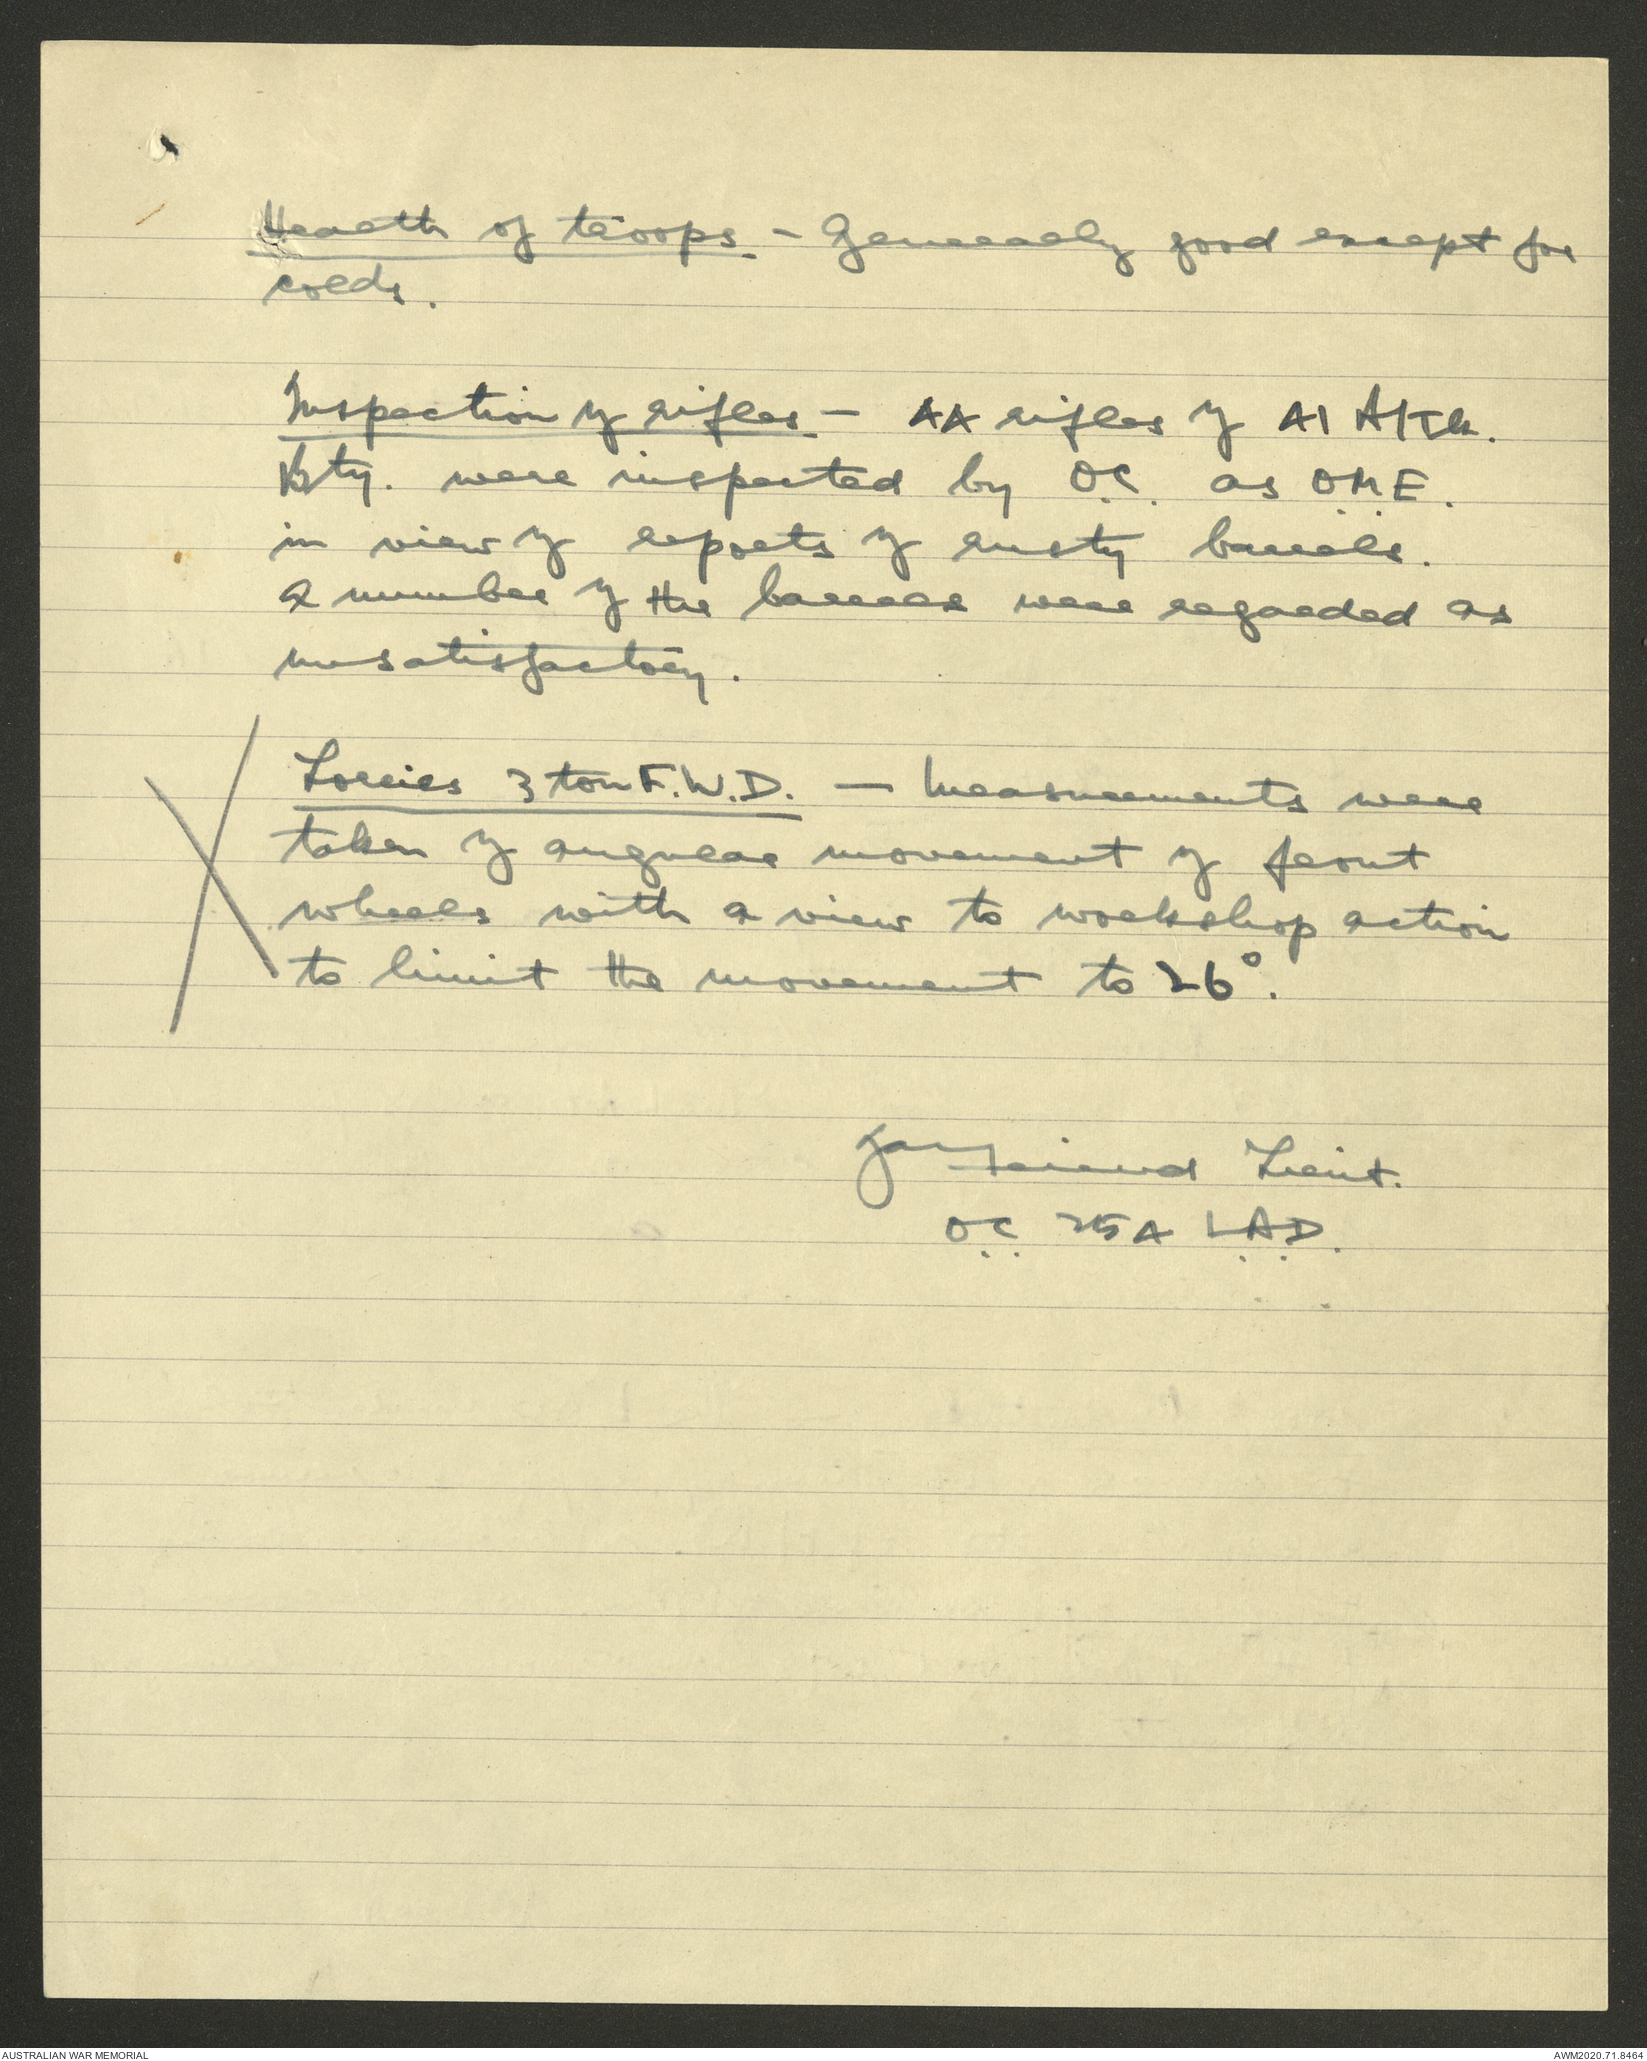 Health of troops - Generally good except for
colds.
Inspection of rifles - AA rifles of A1 A/Tk.
Bty. were inspected by O.C. as O.M.E.
in view of reports of rusty barrels.
A number of the barrels were regarded as
unsatisfactory.
Lorries 3 ton F.W.D. - Measurements were
taken of angular movement of front
wheels with a view to workshop action
to limit the movement to 26°.
Lieut.
O.C. 25A L.A.D.
AUSTRALIAN WAR MEMORIAL
AWM2020.71.8464